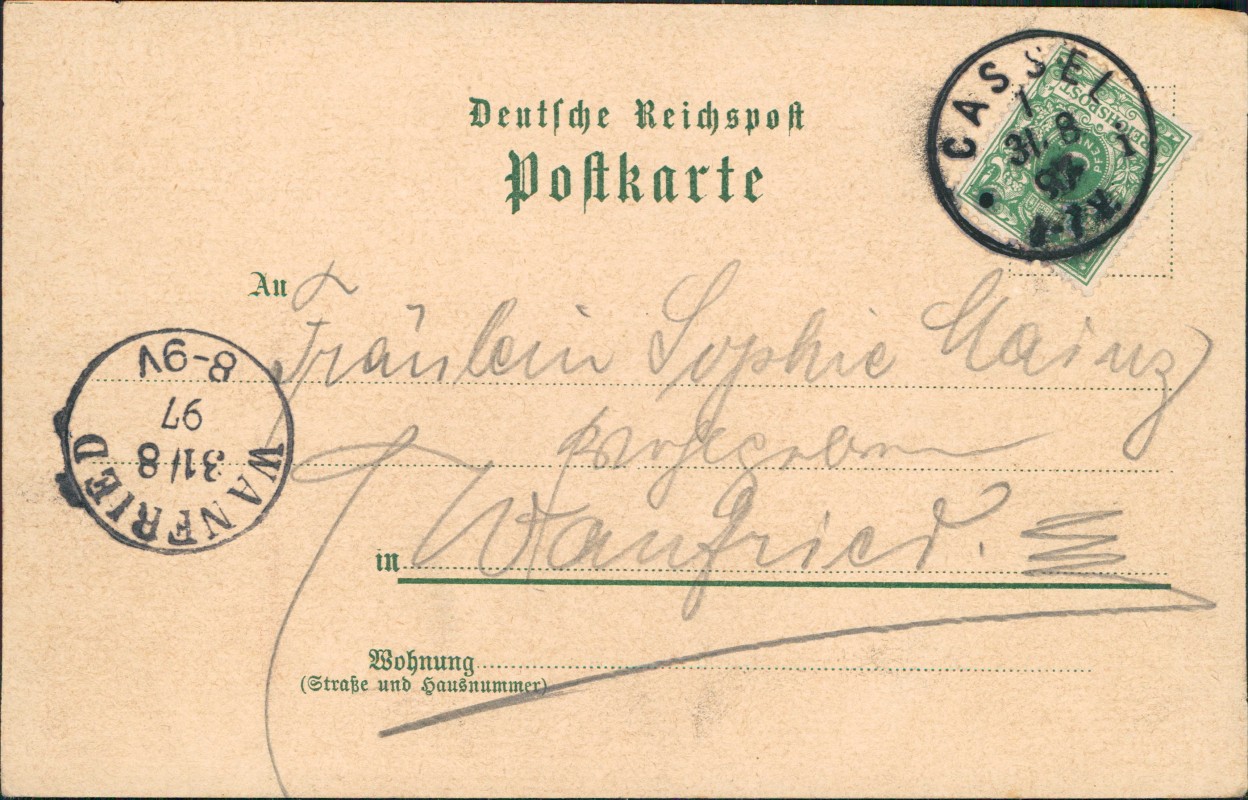 Deutsche Reichspost
Postkarte
CASSEL 1
1
31. 8
97
REICHSPOST
PFENNIG
An Fräulein Sophie Mainz
Wohlgeboren
in Wanfried.
Wohnung
(Straße und Hausnummer)
WANFRIED
31/8
97
8-9V